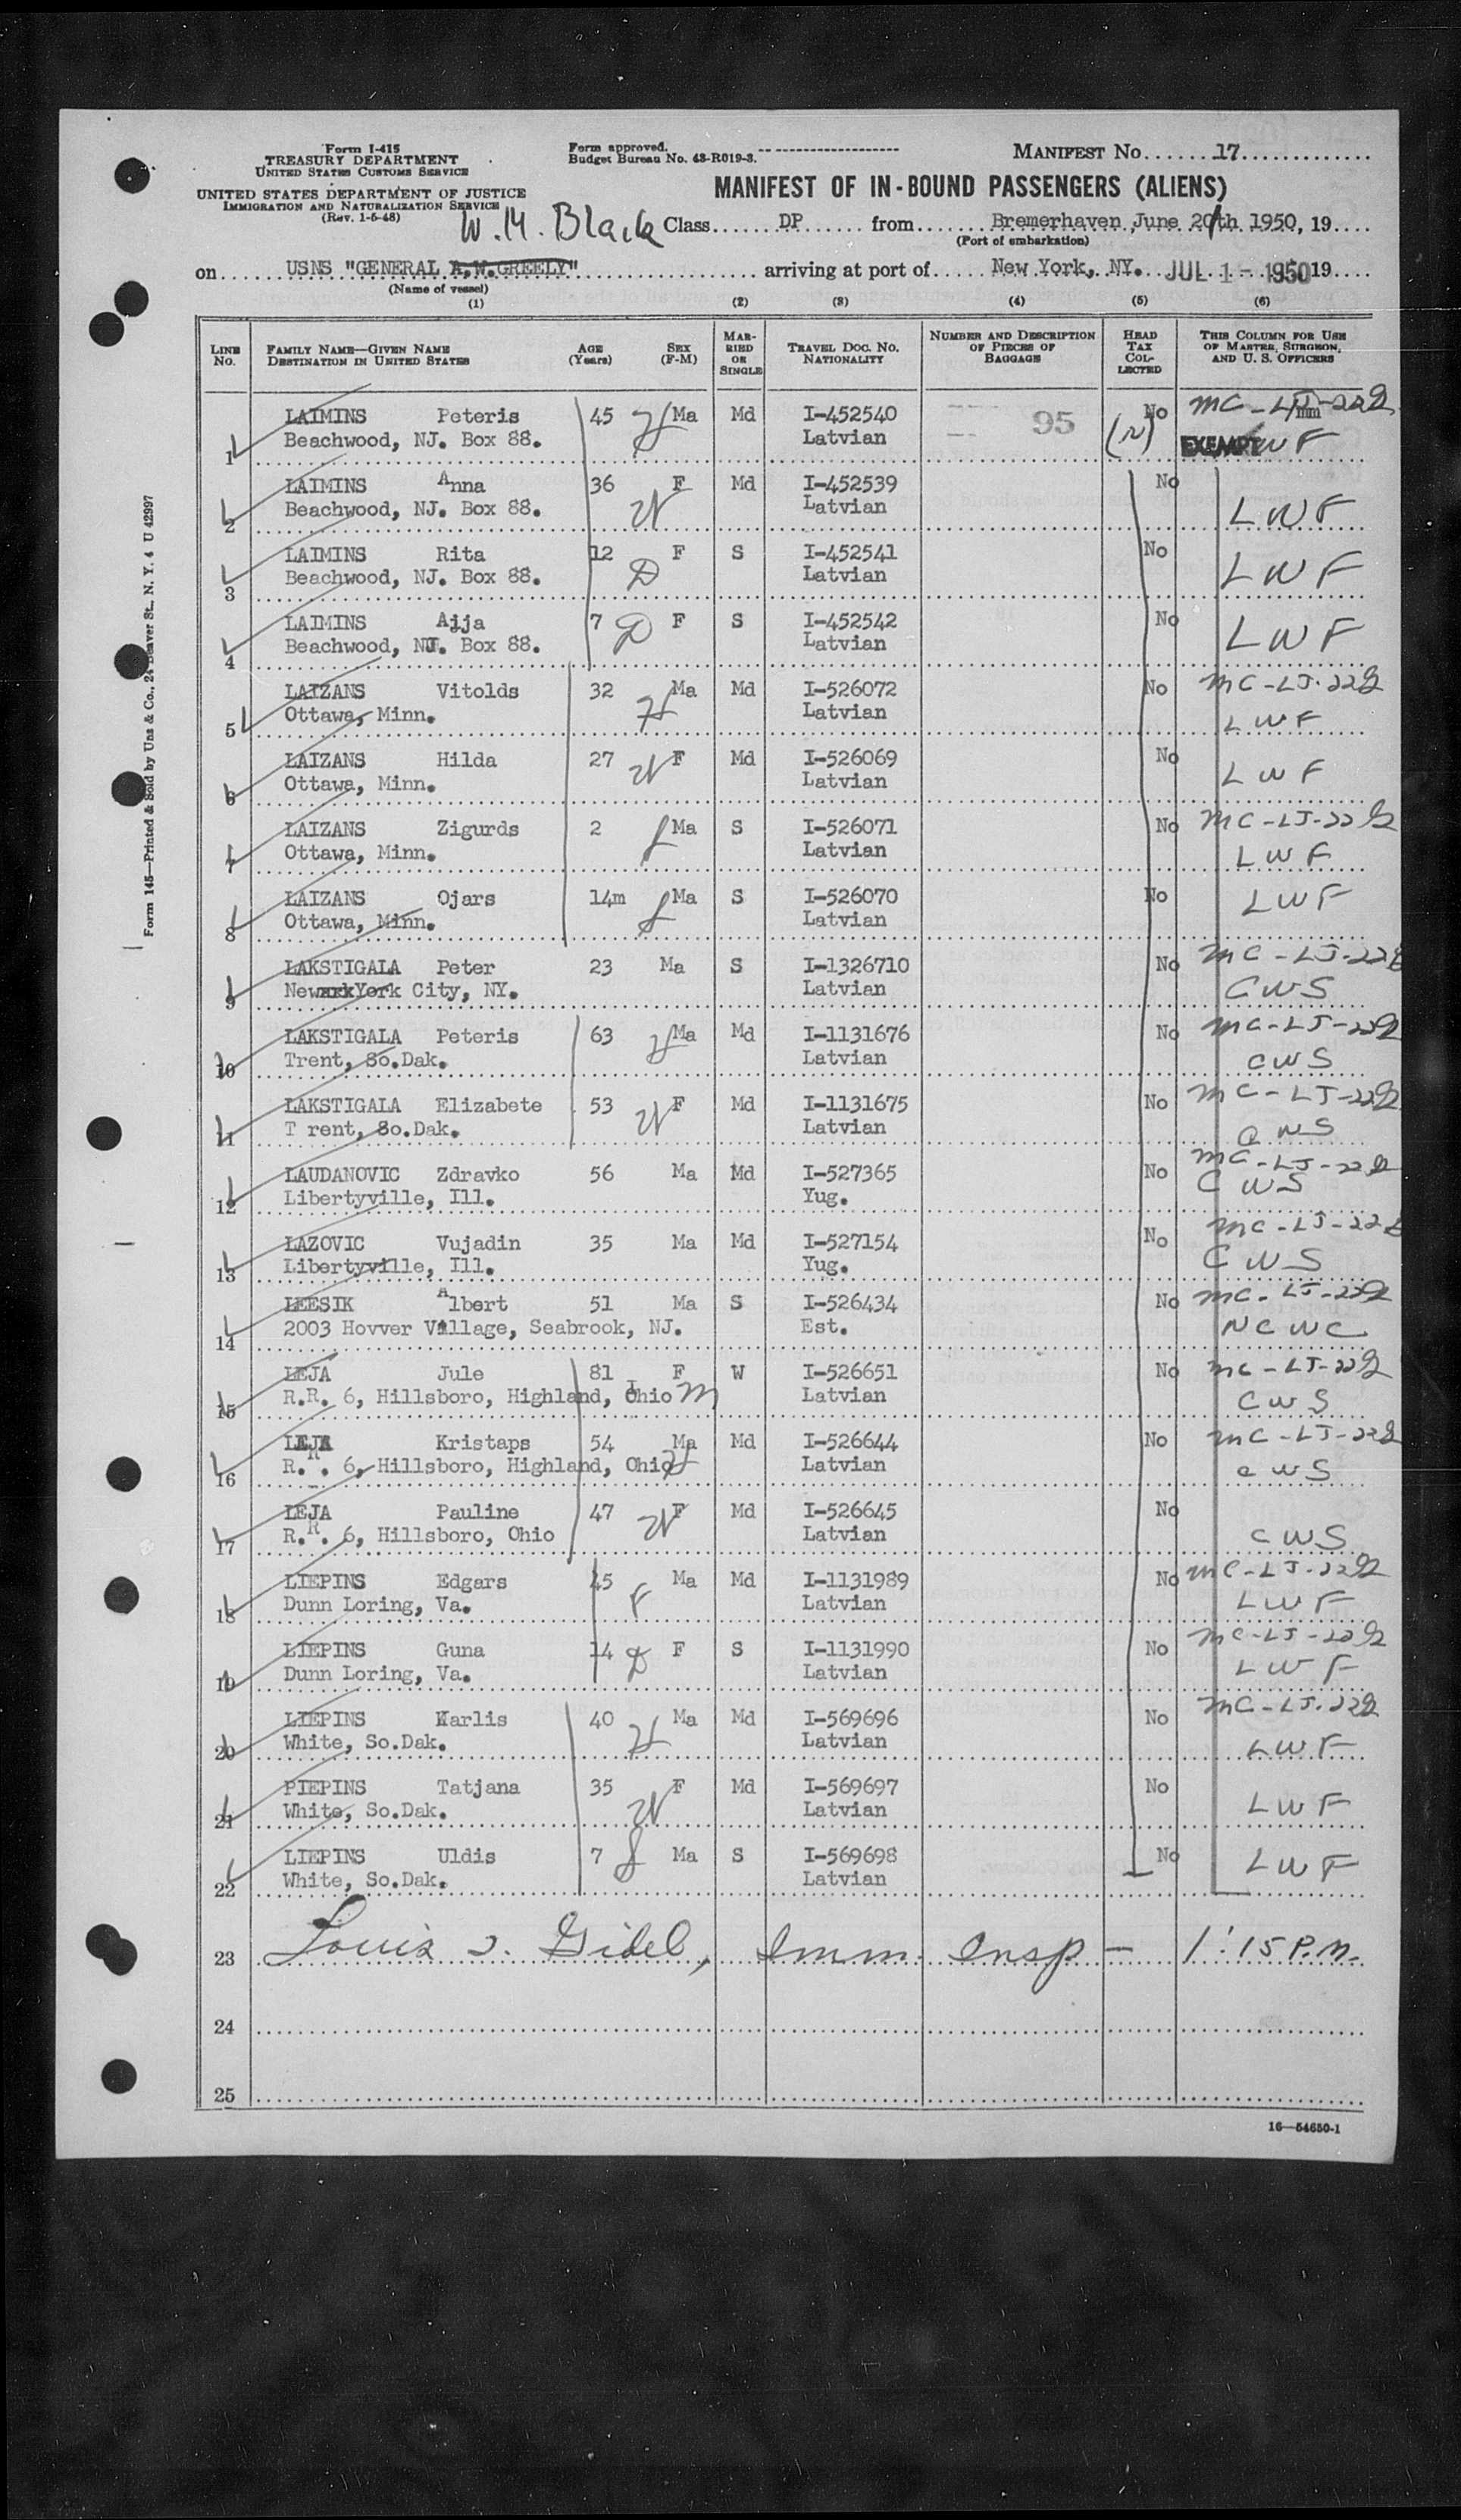 Form I-415
TREASURY DEPARTMENT
UNITED STATES CUSTOMS SERVICE
UNITED STATES DEPARTMENT OF JUSTICE
IMMIGRATION AND NATURALIZATION SERVICE
(Rev. 1-5-48)
Form approved.
Budget Bureau No. 43-R019-3.
MANIFEST No. 17
MANIFEST OF IN-BOUND PASSENGERS (ALIENS)
W. M. Black Class DP from Bremerhaven, June 20th 1950, 19
(Port of embarkation)
on USNS "GENERAL A.W.GREELY" arriving at port of New York, NY. JUL 1 - 1950 19
(Name of vessel)
(1) (2) (3) (4) (5) (6)
LINE No. FAMILY NAME—GIVEN NAME DESTINATION IN UNITED STATES AGE (Years) SEX (F-M) MARRIED OR SINGLE TRAVEL DOC. NO. NATIONALITY NUMBER AND DESCRIPTION OF PIECES OF BAGGAGE HEAD TAX COLLECTED THIS COLUMN FOR USE OF MASTER, SURGEON, AND U. S. OFFICERS
LAIMINS Peteris 45 H Ma Md I-452540 95 No MC-LJ-22
1 Beachwood, NJ. Box 88. Latvian EXEMPT LWF
LAIMINS Anna 36 F Md I-452539 No
2 Beachwood, NJ. Box 88. W Latvian LWF
LAIMINS Rita 12 F S I-452541 No
3 Beachwood, NJ. Box 88. D Latvian LWF
LAIMINS Aija 7 D F S I-452542 No
4 Beachwood, NJ. Box 88. Latvian LWF
LAIZANS Vitolds 32 Ma Md I-526072 No MC-LJ-22
5 Ottawa, Minn. H Latvian LWF
LAIZANS Hilda 27 W F Md I-526069 No
6 Ottawa, Minn. Latvian LWF
LAIZANS Zigurds 2 Ma S I-526071 No MC-LJ-22
7 Ottawa, Minn. Latvian LWF
LAIZANS Ojars 14m Ma S I-526070 No LWF
8 Ottawa, Minn. Latvian
LAKSTIGALA Peter 23 Ma S I-1326710 No MC-LJ-22
9 New York City, NY. Latvian CWS
LAKSTIGALA Peteris 63 H Ma Md I-1131676 No MC-LJ-22
10 Trent, So.Dak. Latvian CWS
LAKSTIGALA Elizabete 53 W F Md I-1131675 No MC-LJ-22
11 T rent, So.Dak. Latvian CWS
LAUDANOVIC Zdravko 56 Ma Md I-527365 No MC-LJ-22
12 Libertyville, Ill. Yug. CWS
LAZOVIC Vujadin 35 Ma Md I-527154 No MC-LJ-22
13 Libertyville, Ill. Yug. CWS
LEESIK Albert 51 Ma S I-526434 No MC-LJ-22
14 2003 Hovver Village, Seabrook, NJ. Est. NCWC
LEJA Jule 81 F W I-526651 No MC-LJ-22
15 R.R. 6, Hillsboro, Highland, Ohio M Latvian CWS
LEJA Kristaps 54 Ma Md I-526644 No MC-LJ-22
16 R.R. 6, Hillsboro, Highland, Ohio H Latvian CWS
LEJA Pauline 47 W F Md I-526645 No
17 R.R. 6, Hillsboro, Ohio Latvian CWS
LIEPINS Edgars 45 Ma Md I-1131989 No MC-LJ-22
18 Dunn Loring, Va. F Latvian LWF
LIEPINS Guna 14 D F S I-1131990 No MC-LJ-22
19 Dunn Loring, Va. Latvian LWF
LIEPINS Karlis 40 Ma Md I-569696 No MC-LJ-22
20 White, So.Dak. H Latvian LWF
PIEPINS Tatjana 35 F Md I-569697 No
21 White, So.Dak. W Latvian LWF
LIEPINS Uldis 7 Ma S I-569698 No
22 White, So.Dak. Latvian LWF
23 Louis J. Gidel, Imm. Insp - 1:15 P.M.
24
25
16—54650-1
Form 145—Printed & Sold by Unz & Co., 24 Beaver St., N. Y. 4 U 42997